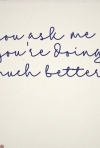 ou ask me
you're doing
much better